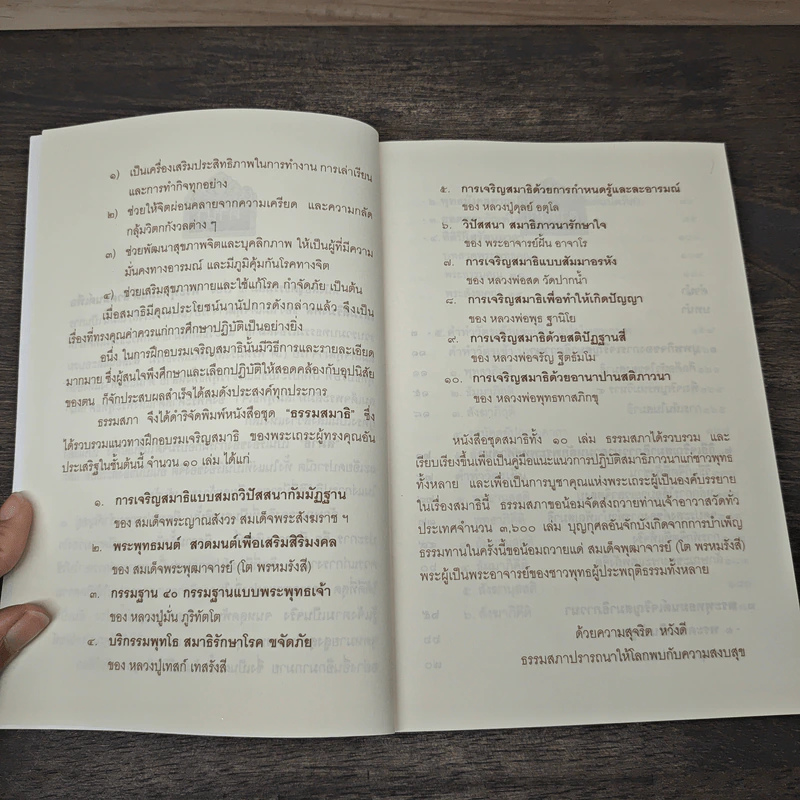 ๑) เป็นเครื่องเสริมประสิทธิภาพในการทำงาน การเล่าเรียน
และการทำกิจทุกอย่าง
๒) ช่วยให้จิตผ่อนคลายจากความเครียด และความกลัด
กลุ้มวิตกกังวลต่าง ๆ
๓) ช่วยพัฒนาสุขภาพจิตและบุคลิกภาพ ให้เป็นผู้ที่มีความ
มั่นคงทางอารมณ์ และมีภูมิคุ้มกันโรคทางจิต
๔) ช่วยเสริมสุขภาพกายและใช้แก้โรค กำจัดภัย เป็นต้น
เมื่อสมาธิมีคุณประโยชน์นานัปการดังกล่าวแล้ว จึงเป็น
เรื่องที่ทรงคุณค่าควรแก่การศึกษาปฏิบัติเป็นอย่างยิ่ง
อนึ่ง ในการฝึกอบรมเจริญสมาธินั้นมีวิธีการและรายละเอียด
มากมาย ซึ่งผู้สนใจพึงศึกษาและเลือกปฏิบัติให้สอดคล้องกับอุปนิสัย
ของตน ก็จักประสบผลสำเร็จได้สมดังประสงค์ทุกประการ
ธรรมสภา จึงได้ดำริจัดพิมพ์หนังสือชุด “ธรรมสมาธิ” ซึ่ง
ได้รวบรวมแนวทางฝึกอบรมเจริญสมาธิ ของพระเถระผู้ทรงคุณอัน
ประเสริฐในชั้นต้นนี้ จำนวน ๑๐ เล่ม ได้แก่
๑. การเจริญสมาธิแบบสมถวิปัสสนากัมมัฏฐาน
ของ สมเด็จพระญาณสังวร สมเด็จพระสังฆราช ฯ
๒. พระพุทธมนต์ สวดมนต์เพื่อเสริมสิริมงคล
ของ สมเด็จพระพุฒาจารย์ (โต พรหมรังสี)
๓. กรรมฐาน ๔๐ กรรมฐานแบบพระพุทธเจ้า
ของ หลวงปู่มั่น ภูริทัตโต
๔. บริกรรมพุทโธ สมาธิรักษาโรค ขจัดภัย
ของ หลวงปู่เทสก์ เทสรังสี
๕. การเจริญสมาธิด้วยการกำหนดรู้และละอารมณ์
ของ หลวงปู่ดุลย์ อตุโล
๖. วิปัสสนา สมาธิภาวนารักษาใจ
ของ พระอาจารย์ฝั้น อาจาโร
๗. การเจริญสมาธิแบบสัมมาอรหัง
ของ หลวงพ่อสด วัดปากน้ำ
๘. การเจริญสมาธิเพื่อทำให้เกิดปัญญา
ของ หลวงพ่อพุธ ฐานิโย
๙. การเจริญสมาธิด้วยสติปัฏฐานสี่
ของ หลวงพ่อจรัญ ฐิตธัมโม
๑๐. การเจริญสมาธิด้วยอานาปานสติภาวนา
ของ หลวงพ่อพุทธทาสภิกขุ
หนังสือชุดสมาธิทั้ง ๑๐ เล่ม ธรรมสภาได้รวบรวม และ
เรียบเรียงขึ้นเพื่อเป็นคู่มือแนะแนวการปฏิบัติสมาธิภาวนาแก่ชาวพุทธ
ทั้งหลาย และเพื่อเป็นการบูชาคุณแห่งพระเถระผู้เป็นองค์บรรยาย
ในเรื่องสมาธินี้ ธรรมสภาขอน้อมจัดส่งถวายท่านเจ้าอาวาสวัดทั่ว
ประเทศจำนวน ๓,๖๐๐ เล่ม บุญกุศลอันจักบังเกิดจากการบำเพ็ญ
ธรรมทานในครั้งนี้ขอน้อมถวายแด่ สมเด็จพุฒาจารย์ (โต พรหมรังสี)
พระผู้เป็นพระอาจารย์ของชาวพุทธผู้ประพฤติธรรมทั้งหลาย
ด้วยความสุจริต หวังดี
ธรรมสภาปรารถนาให้โลกพบกับความสงบสุข